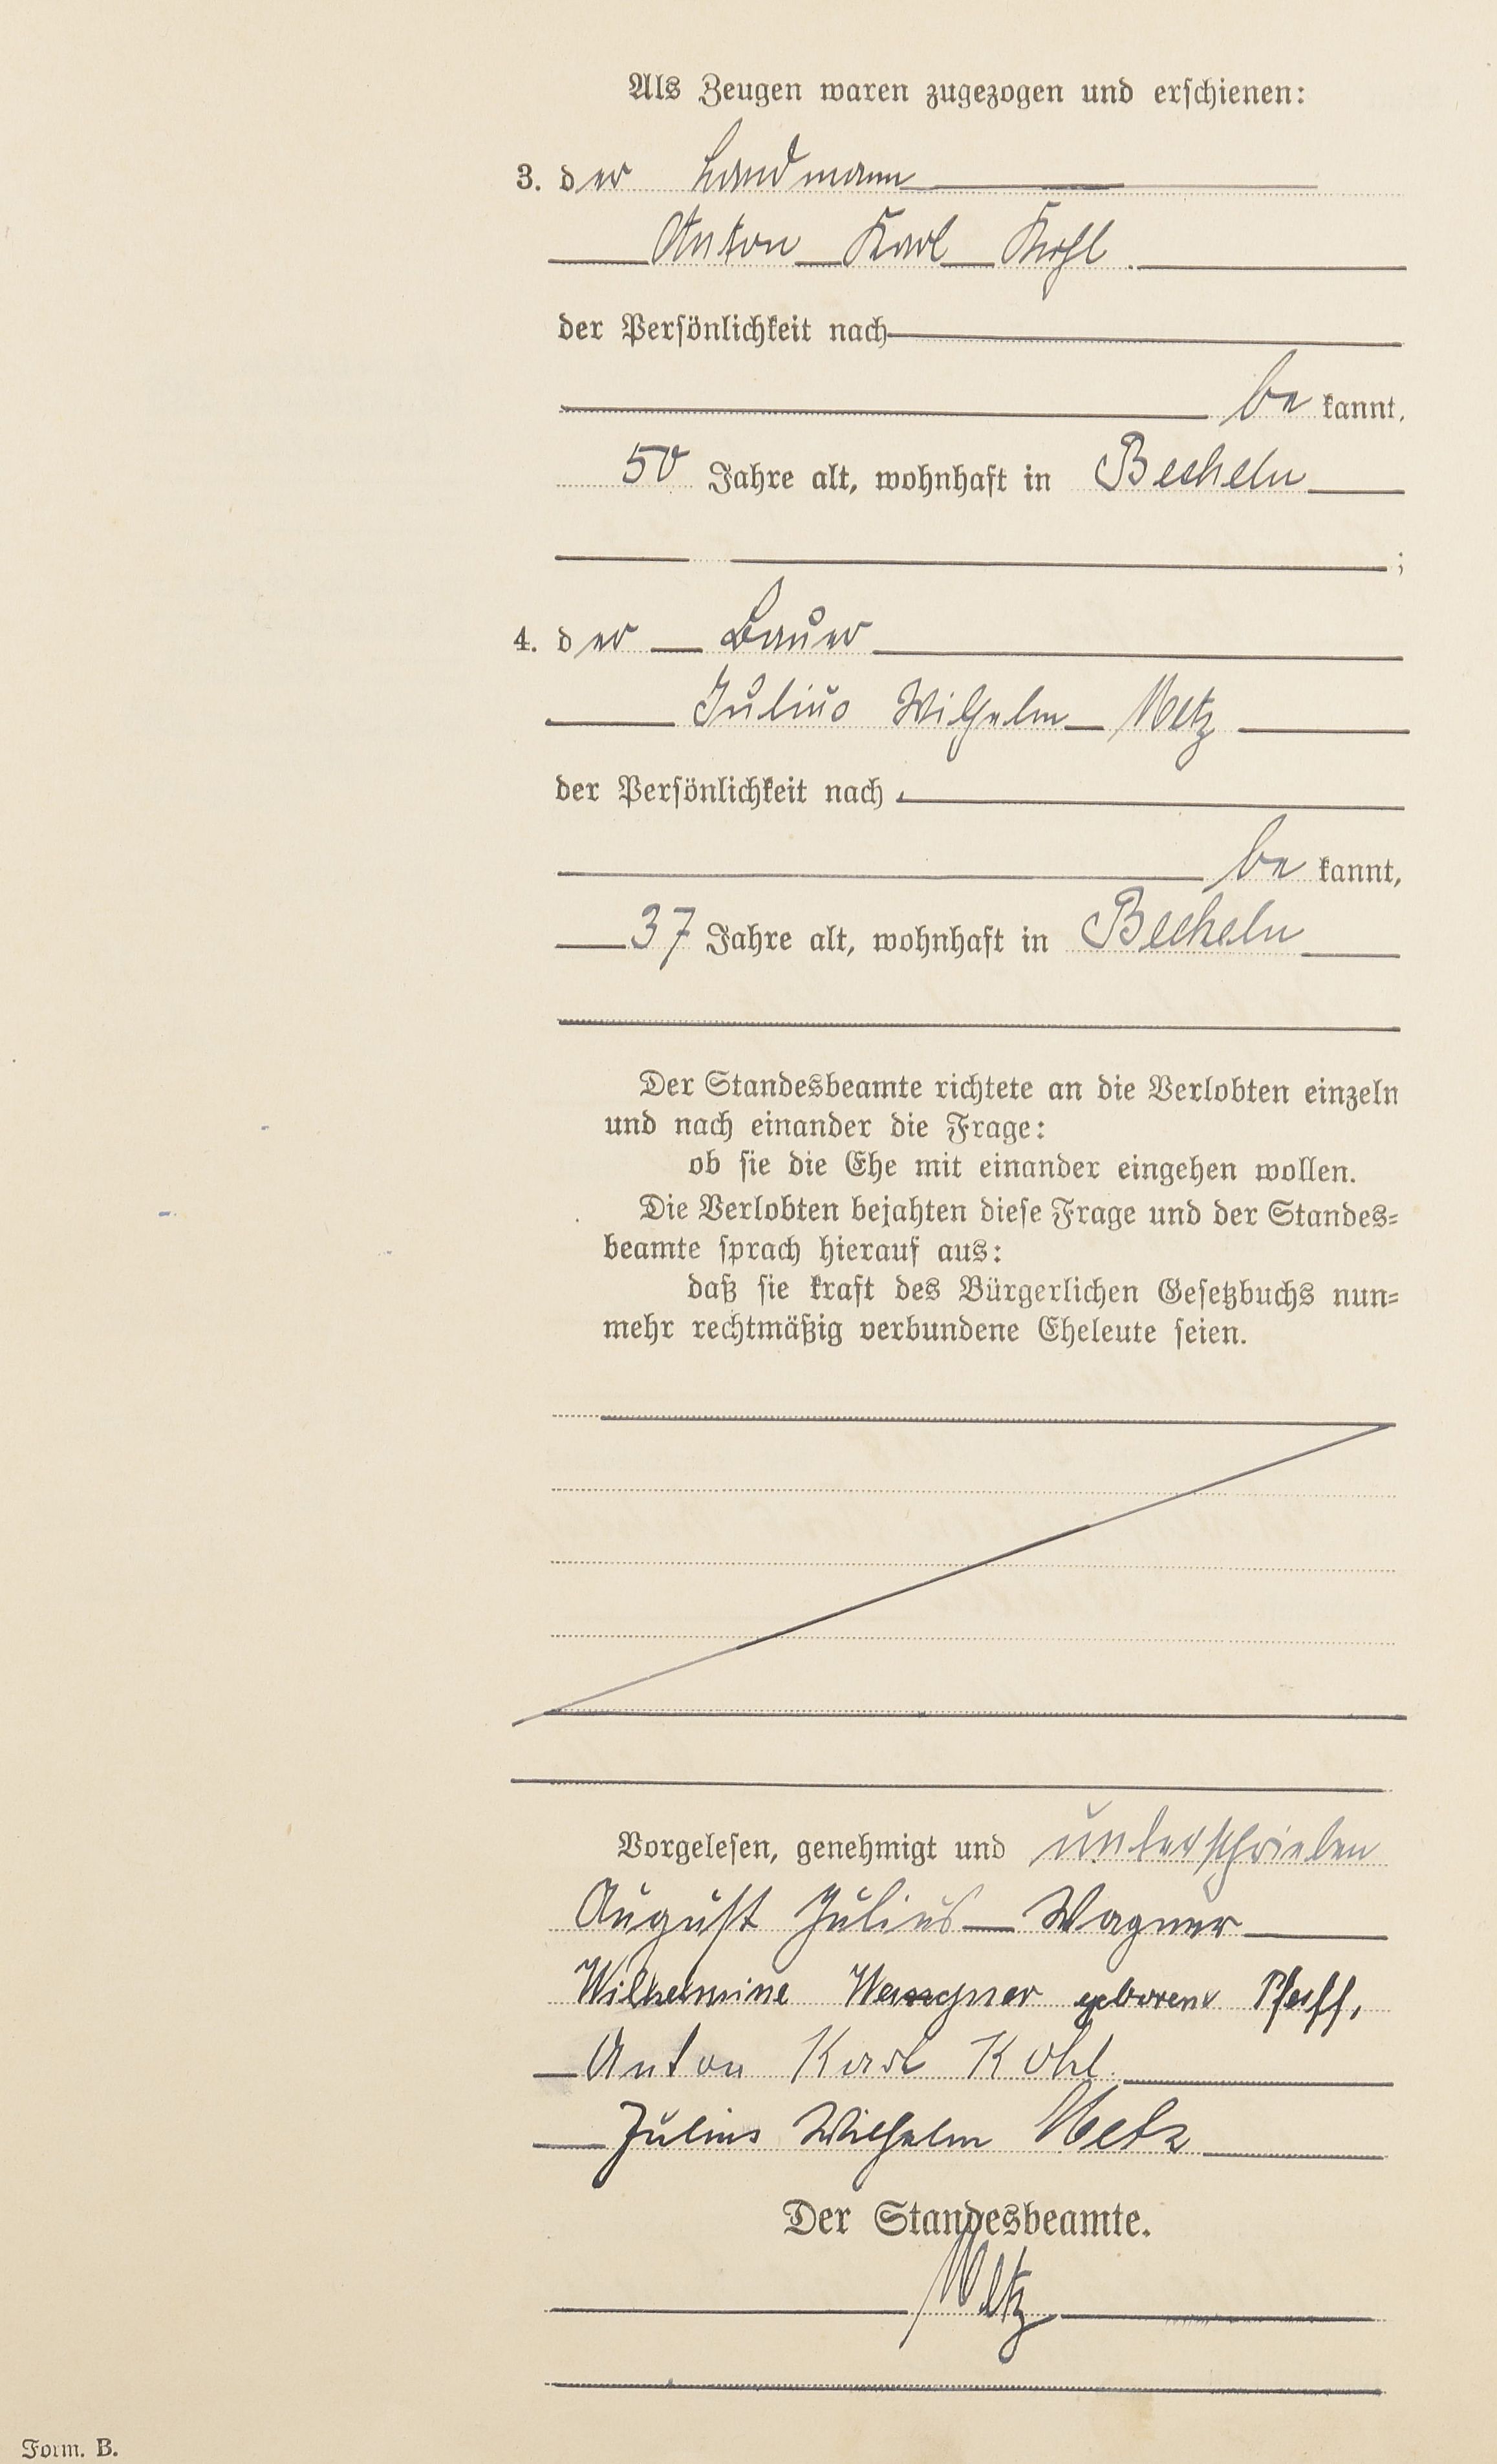 Als Zeugen waren zugezogen und erschienen:
3. der Landmann
Anton Karl Kohl.
der Persönlichkeit nach
be kannt,
50 Jahre alt, wohnhaft in Becheln
;
4. der Bauer
Julius Wilhelm Metz
der Persönlichkeit nach
be kannt,
37 Jahre alt, wohnhaft in Becheln
Der Standesbeamte richtete an die Verlobten einzeln
und nach einander die Frage:
ob sie die Ehe mit einander eingehen wollen.
Die Verlobten bejahten diese Frage und der Standes-
beamte sprach hierauf aus:
daß sie kraft des Bürgerlichen Gesetzbuchs nun-
mehr rechtmäßig verbundene Eheleute seien.
Vorgelesen, genehmigt und unterschrieben
August Julius Wagner
Wilhelmine Wagner geborene Pfaff,
Anton Karl Kohl.
Julius Wilhelm Metz
Der Standesbeamte.
Metz
Form. B.